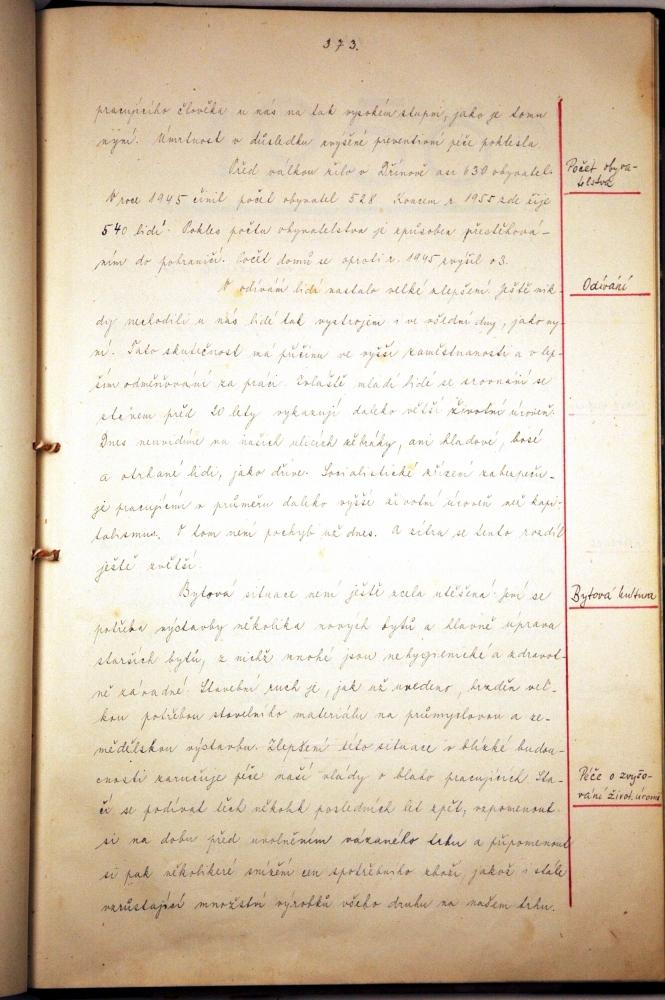 373.
pracujícího člověka u nás na tak vysokém stupni, jako je tomu
nyní. Úmrtnost v důsledku zvýšené preventivní péče poklesla.
Před válkou žilo v Dřínově asi 630 obyvatel.
Počet obyva-
telstva
V roce 1945 činil počet obyvatel 528. Koncem r. 1955 zde žije
540 lidí. Pokles počtu obyvatelstva je způsoben přestěhová-
ním do pohraničí. Počet domů se oproti r. 1945 zvýšil o 3.
V odívání lidí nastalo velké zlepšení. Ještě nik-
Odívání
dy nechodili u nás lidé tak vystrojeni i ve všední dny, jako ny-
ní. Tato skutečnost má příčinu ve vyšší zaměstnanosti a v lep-
ším odměňování za práci. Zvláště mladí lidé se srovnání se
stavem před 20 lety vykazují daleko větší životní úroveň.
Dnes neuvidíme na našich ulicích žebráky, ani hladové, bosé
a otrhané lidi, jako dříve. Socialistické zřízení zabezpeču-
je pracujícím v průměru daleko vyšší životní úroveň než kapi-
talismus. O tom není pochyb už dnes. A zítra se tento rozdíl
ještě zvětší.
Bytová situace není ještě zcela utěšená. Jeví se
Bytová kultura
potřeba výstavby několika nových bytů a hlavně úprava
starších bytů, z nichž mnohé jsou nehygienické a zdravot-
ně závadné. Stavební ruch je, jak už uvedeno, brzděn vel-
kou potřebou stavebního materiálu na průmyslovou a ze-
mědělskou výstavbu. Zlepšení této situace v blízké budou-
cnosti zaručuje péče naší vlády o blaho pracujících. Sta-
Péče o zvyšo-
vání život. úrovně
čí se podívat těch několik posledních let zpět, vzpomenout
si na dobu před uvolněním vázaného trhu a připomenout
si pak několikeré snížení cen spotřebního zboží, jakož i stále
vzrůstající množství výrobků všeho druhu na našem trhu.